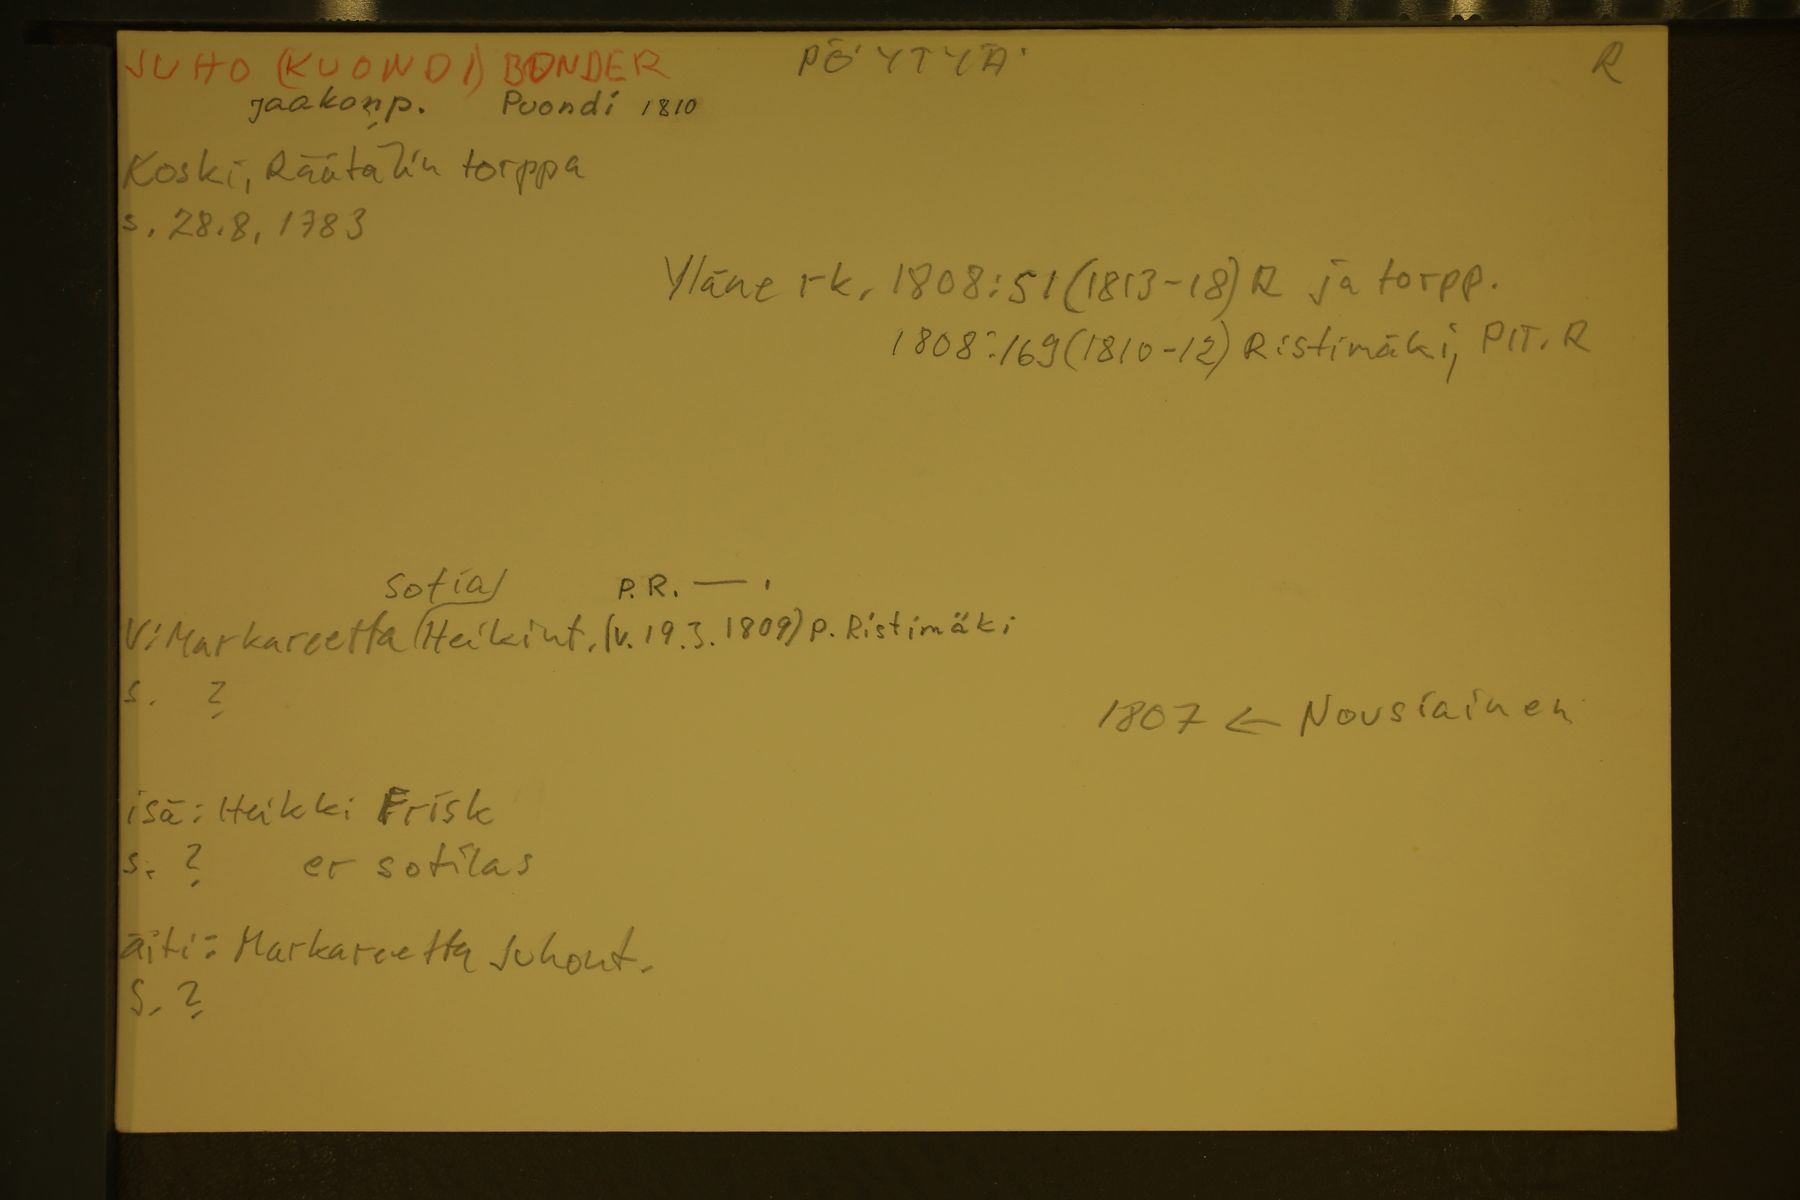 JUHO (KUONDI) BONDER PÖYTYÄ R
Jaakonp. Puondi 1810
Koski, Räätälin torppa
s. 28.8. 1783
Yläne rk. 1808:51 (1813-18) R ja torpp.
1808:169 (1810-12) Ristimäki, PIT. R
Sofia P.R. — .
V: Markareetta (Heikint. (v. 19.3.1809) P. Ristimäki
s. ?
1807 ← Nousiainen
isä: Heikki Frisk
s. ? er sotilas
äiti: Markareetta Juhont.
S. ?